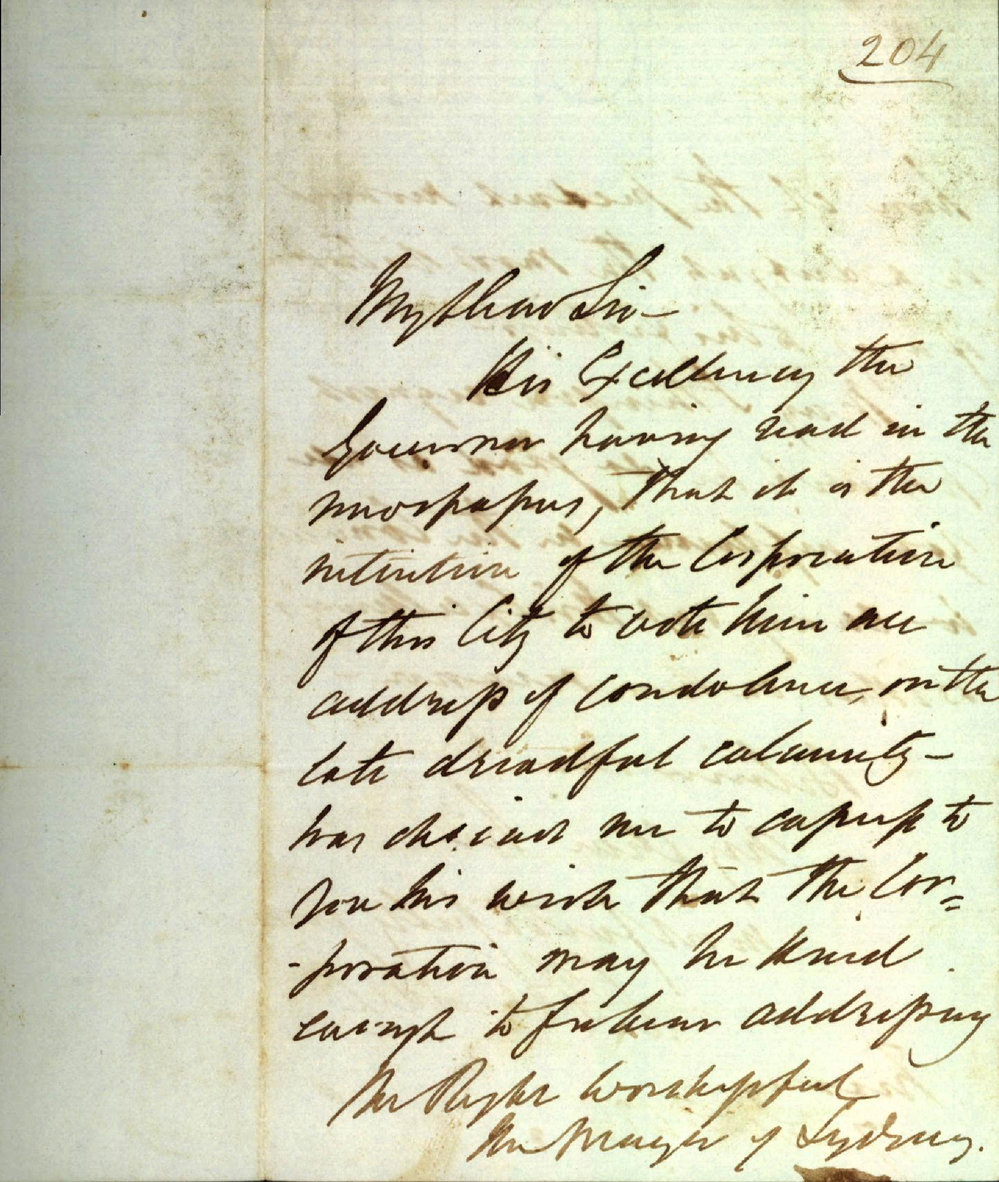 204
My dear Sir —
His Excellency the
Governor having read in the
newspapers, that it is the
intention of the Corporation
of this City to vote him an
address of condolence, on the
late dreadful calamity —
has desired me to express to
you his wish that the Cor=
-poration may be kind
enough to forbear addressing
The Right Worshipful
The Mayor of Sydney.